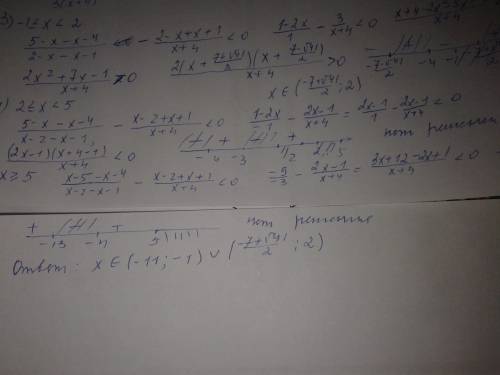 3) -1 ≤ x < 2
5-x-x-4/2-x-x-1 - 2-x+x+1/x+4 < 0   1-2x/1 - 3/x+4 < 0
2x²+7x-1/x+4 > 0   2(x + 7+√41/2)(x + 7-√41/2)/x+4 > 0   -7-√41/2   -4   -1
x ∈ (-7+√41/2; 2)
2 ≤ x < 5
5-x-x-4/x-2-x-1 - x-2+x+1/x+4 < 0   1-2x/1 - 2x-1/x+4 = 2x-1/1 - 2x-1/x+4 < 0
(2x-1)(x+4-1)/x+4 < 0   + + -4 -3 1/2 2 5   нет решений
x ≥ 5   x-5-x-4/x-2-x-1 - x-2+x+1/x+4 < 0   = 9/3 - 2x-1/x+4 = 3x+12-2x+1/x+4 < 0
+ + -13 -4 5   нет решение
Ответ: x ∈ (-11; -1) ∪ (-7+√41/2; 2)